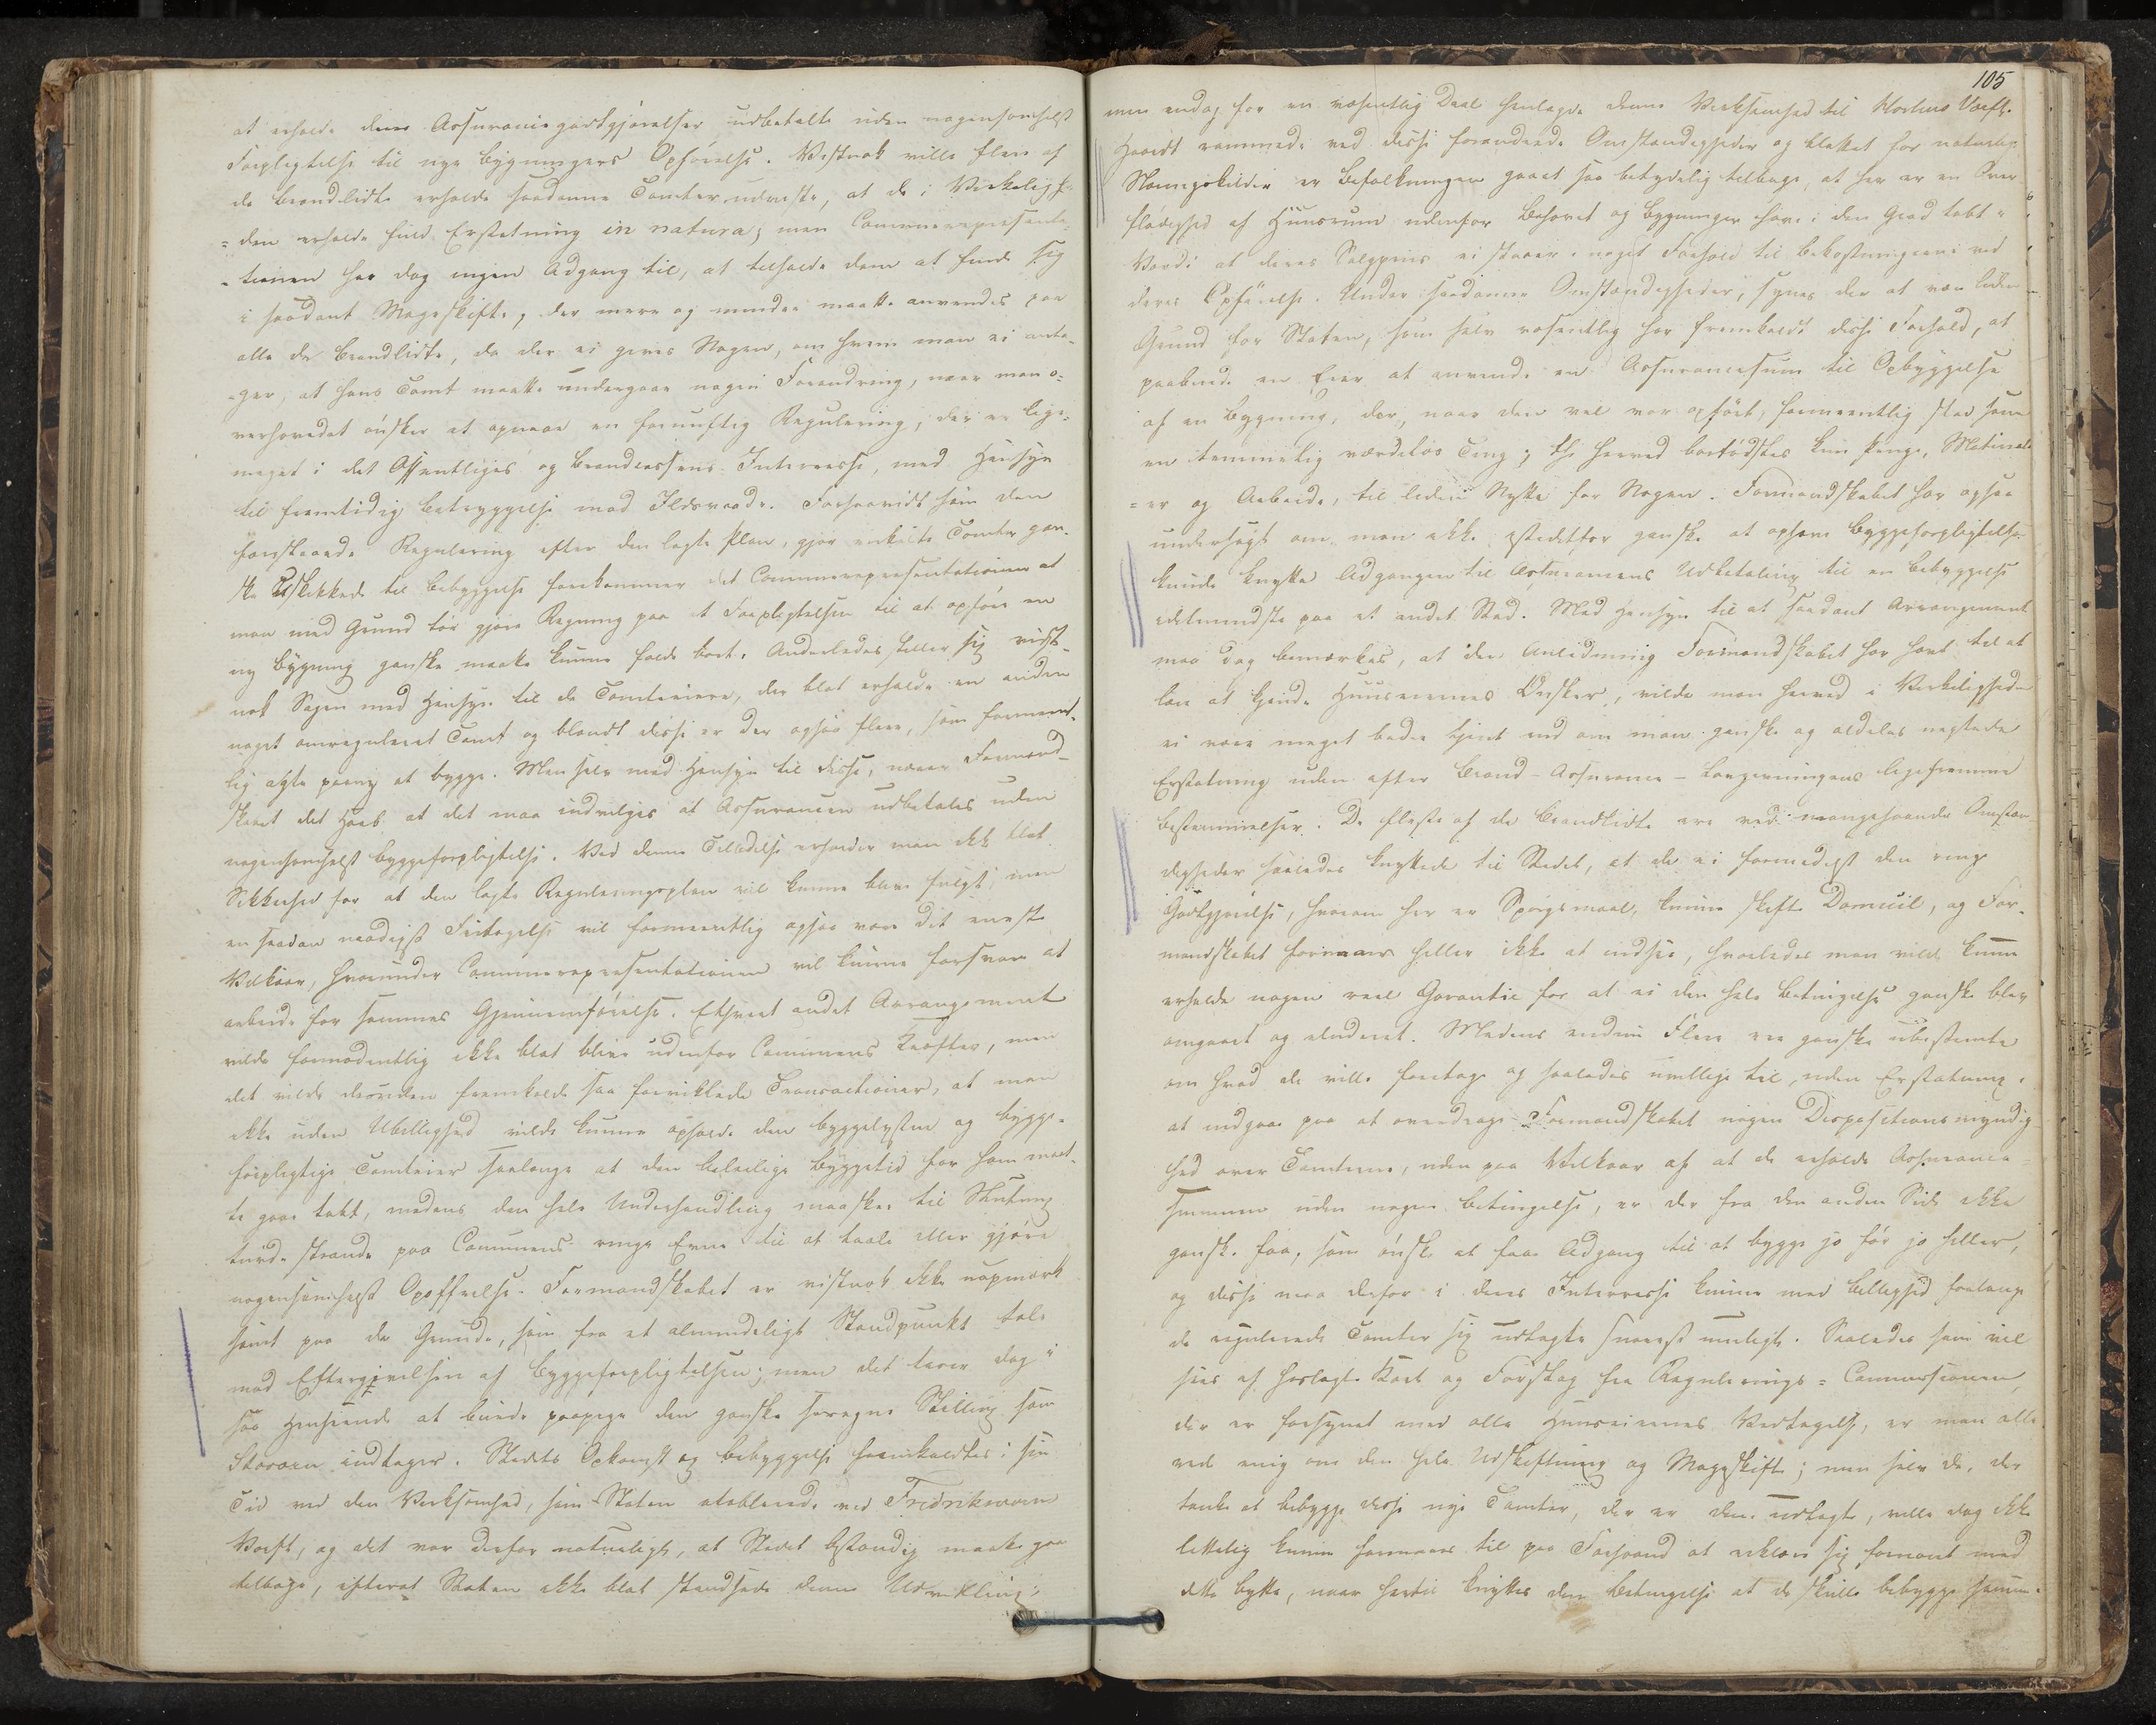 at erholde deres Assurancegodtgjørelser udbetalte uden nogensomhelst
Forpligtelse til nye Bygningers Opførelse. Vistnok ville flere af
de brandlidte erholde saadanne Tomter udviste, at de i Virkelighe-
=den erholde fuld Erstatning in natura; men Communerepræsenta-
=tionen har dog ingen Adgang til, at tilholde dem at finde sig
i saadant Mageskifte, der mere og mindre maatte anvendes paa
alle de brandlidte, da der ei gives Nogen, om hvem man ei anta-
=ger, at hans Tomt maatte undergaae nogen Forandring, naar man o=
verhovedet ønsker at opnaae en fornuftig Regulering, der er lige-
meget i det Offentliges og Brandcassens Interesse, med Hensyn
til fremtidig Betryggelse mod Ildsvaade. Forsaavidt som den
forestaaende Regulering efter den lagte Plan, gjør enkelte Tomter gan-
ske uskikkede til Bebyggelse forekommer det Communerepræsentationen at
man med Grund tør gjøre Regning paa at Forpligtelsen til at opføre en
ny Bygning ganske maatte kunne falde bort. Anderledes stiller sig vist-
nok Sagen med Hensyn til de Tomteeiere, der blot erholde en anden
noget omreguleret Tomt og blandt disse er der ogsaa flere, som formeent-
lig agte paany at bygge. Men selv med Hensyn til disse, nærer Formand-
skabet det Haab at det maa indvilges at Assurancen udbetales uden
nogensomhelst Byggeforpligtelse. Ved denne Tilladelse erholder man ikke blot
Sikkerhed for at den lagte Reguleringsplan vil kunne blive fulgt; men
en saadan naadigst Fritagelse vil formeentlig ogsaa være det eneste
Vilkaar, hvorunder Communerepræsentationen vil kunne forsvare at
arbeide for sammes Gjennemførelse. Ethvert andet Arrangement
vilde formodentlig ikke blot blive udenfor Communens Kræfter, men
det vilde desuden fremkalde saa forviklede Transactioner, at man
ikke uden Ubillighed vilde kunne opholde den byggelystne og bygge-
forpligtige Tomteeier saalænge at den beleilige Byggetid for ham maat-
te gaae tabt, medens den hele Underhandling maaskee til Slutning
turde strande paa Communens ringe Evne til at taale eller gjøre
nogensomhelst Opoffrelse. Formandskabet er vistnok ikke uopmærk
somt paa de Grunde, som fra et almindeligt Standpunkt tale
mod Eftergivelsen af Byggeforpligtelsen; men det troer dog i
saa Henseende at burde paapege den ganske særegne Stilling som
Staværn indtager. Stedets Opkomst og Bebyggelse fremkaldtes i sin
Tid ved den Virksomhed, som Staten etablerede ved Fredriksværn
Værft, og det var derfor naturligt, at Stedet bestandig maatte gaa
tilbage, efterat Staten ikke blot standsede denne Udvikling;
105
men endog for en væsentlig Deel henlagde denne Virksomhed til Hortens Værft.
Haardt rammede ved disse forandrede Omstændigheder og blottet for naturlige
Næringskilder er Befolkningen gaaet saa betydelig tilbage, at her er en Over
flødighed af Huusrum udenfor Behovet og Bygninger have i den Grad tabt i
Værdi at deres Salgspriis ei staaer i noget Forhold til Bekostningerne ved
deres Opførelse. Under saadanne Omstændigheder, synes der at være liden
Grund for Staten, som selv væsentlig har fremkaldt disse Forhold, at
paabyde en Eier at anvende en Assurancesum til Opbyggelse
af en Bygning, der, naar den vel var opført, formeentlig stod som
en temmelig værdeløs Ting; thi herved bortødsles kun Penge, Materiali-
=er og Arbeide, til liden Nytte for Nogen. Formandskabet har ogsaa
undersøgt om man ikke istedetfor ganske at ophæve Byggeforpligtelsen
kunde knytte Adgangen til Assurancens Udbetaling til en Bebyggelse
idetmindste paa et andet Sted. Med Hensyn til et saadant Arrangement
maa dog bemærkes, at den Anledning Formandskabet har havt til at
lære at kjende Huuseiernes Ønsker, vilde man herved i Virkeligheden
ei være meget bedre tjent end om man ganske og aldeles negtede
Erstatning uden efter Brand-Assurance-Lovgivningens ligefremme
Bestemmelser. De fleste af de Brandlidte ere ved mangehaande Omstæn
digheder saaledes knyttede til Stedet, at de ei formedelst den ringe
Godtgjørelse, hvorom her er Spørgsmaal, kunne skifte Domicil, og For-
mandskabet formaaer heller ikke at indsee, hvorledes man vilde kunne
erholde nogen reel Garantie for at ei den hele Betingelse ganske blev
omgaaet og eluderet. Medens endnu Flere ere ganske ubestemte
om hvad de ville foretage og saaledes uvillige til, uden Erstatning,
at indgaae paa at overdrage Formandskabet nogen Dispositionsmyndig
hed over Tomterne, uden paa Vilkaar af at de erholde Assurance-
summen uden nogen Betingelse, er der fra den anden Side ikke
ganske faa, som ønske at faae Adgang til at bygge jo før jo heller,
og disse maa derfor i deres Interesse kunne med Billighed forlange
de regulerede Tomter sig udlagte snarest muligt. Saaledes som vil
sees af hoslagte Kart og Forslag fra Regulerings-Commissionen,
der er forsynet med alle Huuseiernes Vedtagelse, er man alle-
rede enig om den hele Udskiftning og Mageskifte; men selv de, der
tænke at bebygge disse nye Tomter, der er dem udlagte, ville dog ikke
lettelig kunne formaaes til paa Forhaand at erklære sig fornøiet med
dette Bytte, naar hertil knyttes den Betingelse at de skulle bebygge samme